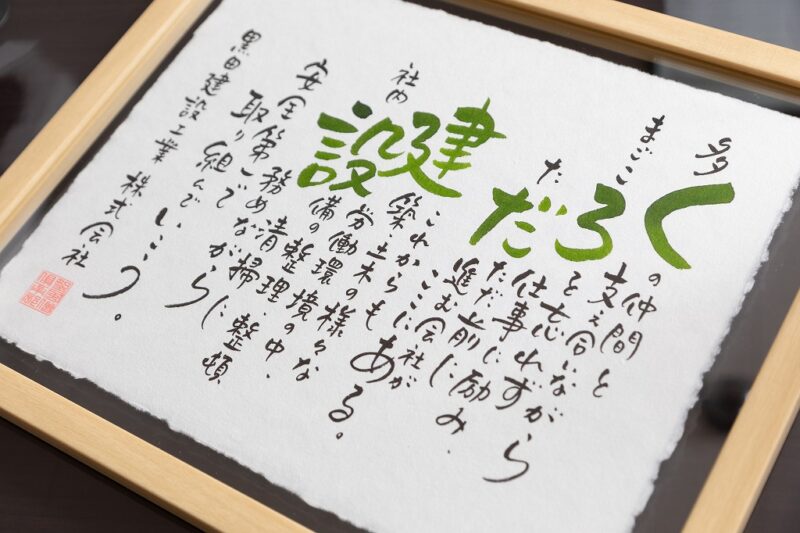 多くの仲間と
支え合いながら
まごころを忘れず
仕事に励み、
ただただ前に
進む会社が
ここにある。
これからも
建築・土木の様々な
労働環境の中、
社内設備の整理・整頓
清掃に務めながら
安全第一
取り組んでいこう。
黒田建設工業株式会社